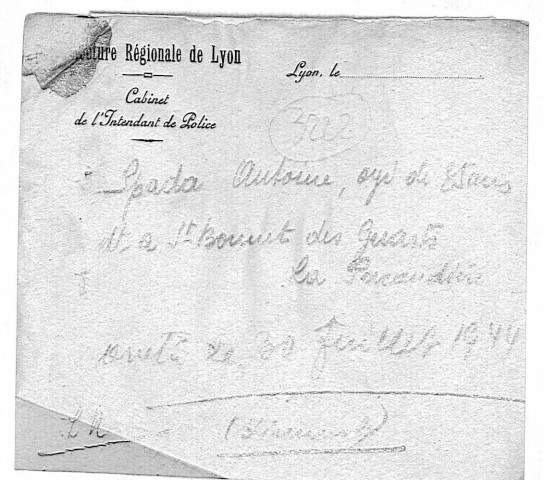 ecture Régionale de Lyon
Cabinet
de l'Intendant de Police
Lyon, le
5222
Spada Antoine, agé de ans
St Bonnet des Quarts
La
arrêté le 30 Juillet 1944